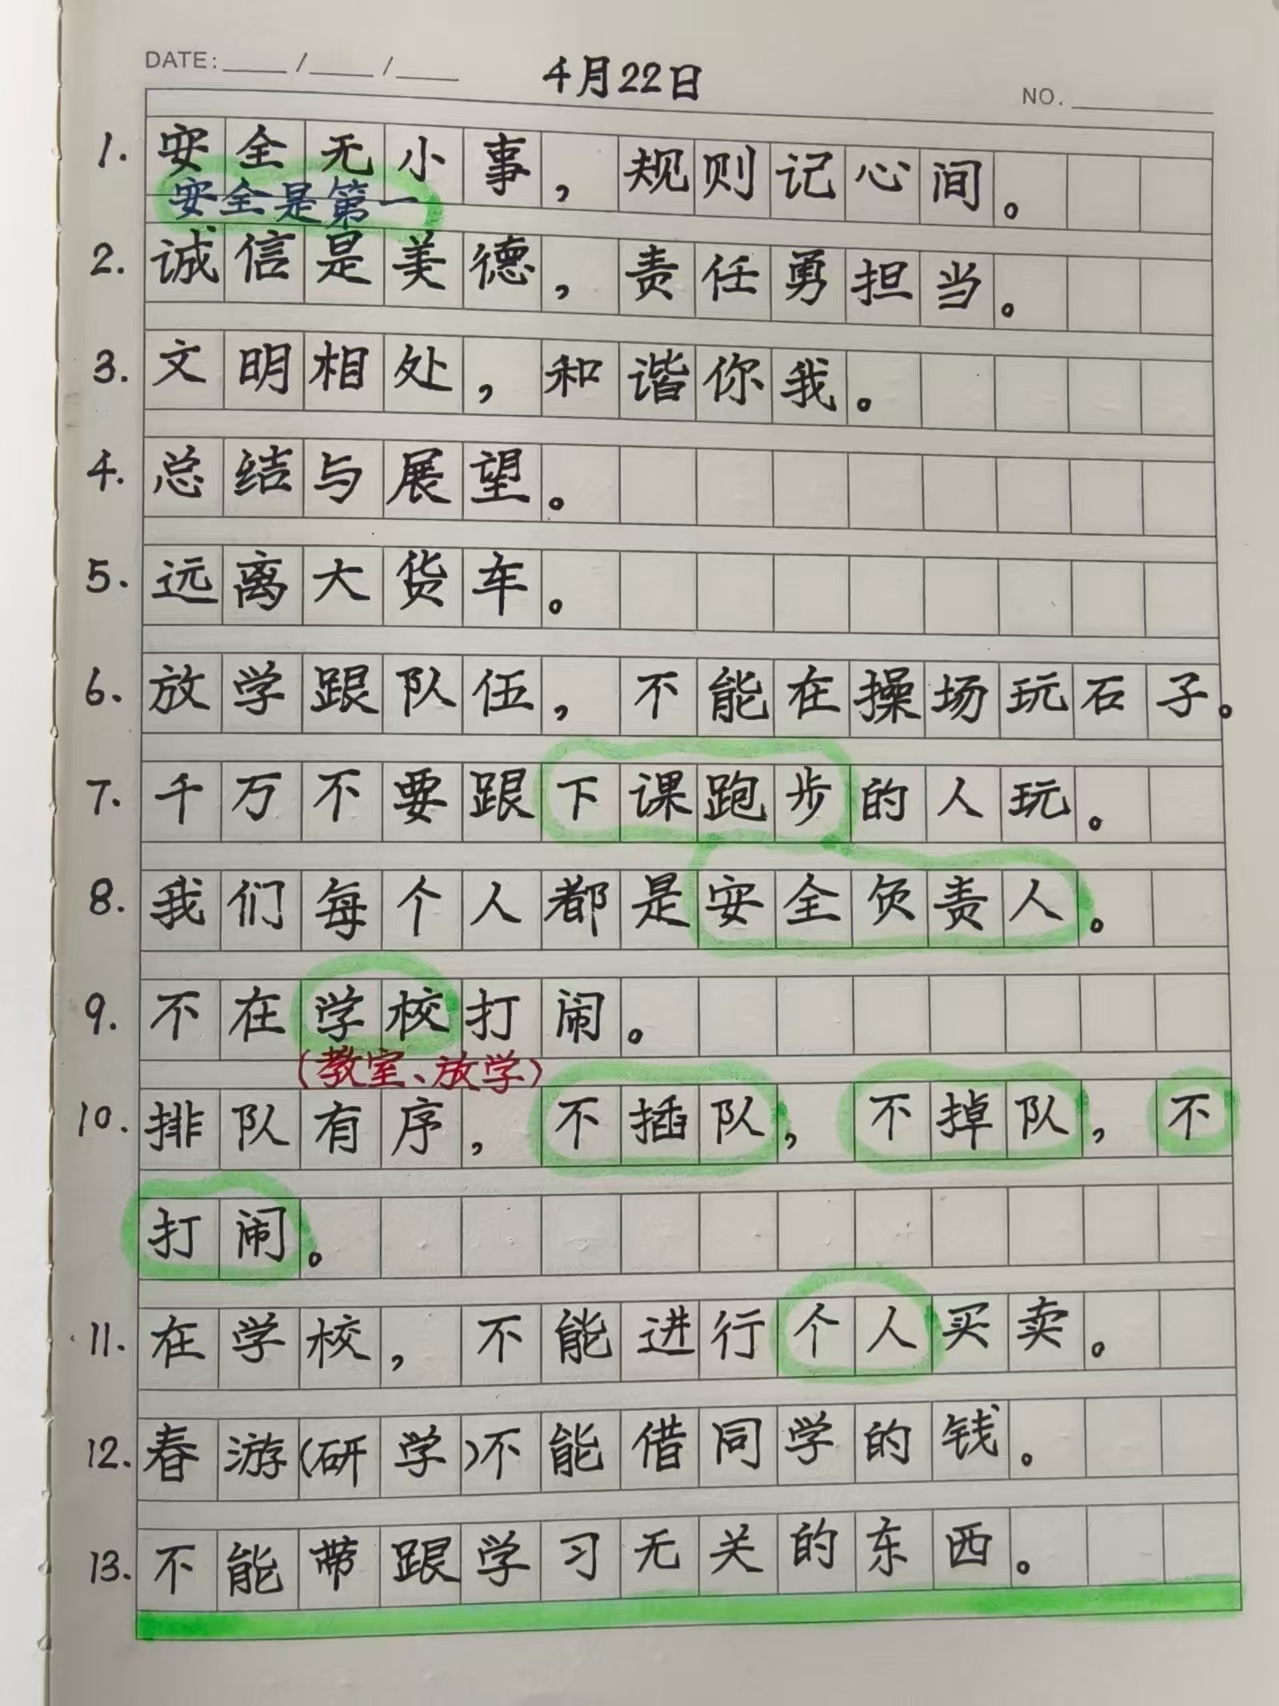 DATE: ____ / ____ / ____ 4月22日 NO. ________
1. 安全无小事，规则记心间。
安全是第一
2. 诚信是美德，责任勇担当。
3. 文明相处，和谐你我。
4. 总结与展望。
5. 远离大货车。
6. 放学跟队伍，不能在操场玩石子。
7. 千万不要跟下课跑步的人玩。
8. 我们每个人都是安全负责人。
9. 不在学校打闹。
(教室、放学)
10. 排队有序，不插队，不掉队，不
打闹。
11. 在学校，不能进行个人买卖。
12. 春游(研学)不能借同学的钱。
13. 不能带跟学习无关的东西。